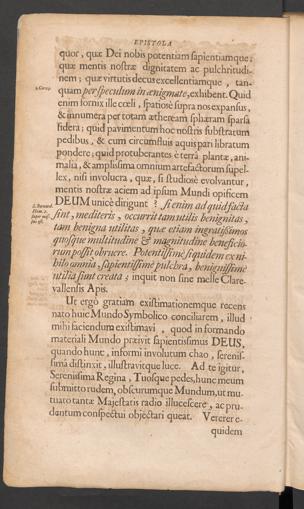 EPISTOLA
quor, quæ Dei nobis potentiam sapientiamque;
quæ mentis nostræ dignitatem ac pulchritudi-
nem; quæ virtutis decus excellentiamque, tan-
quam per speculum in ænigmate, exhibent. Quid
enim fornix ille cœli, spatiosè supra nos expansus,
& innumera per totam æthereâm sphæram sparsa
sidera; quid pavimentum hoc nostris substratum
pedibus, & cum circumfluis aquis pari libratum
pondere; quid protuberantes è terrâ plantæ, ani-
malia, & amplissima omnium artefactorum supel-
lex, nisi involucra, quæ, si studiosè evolvantur,
mentis nostræ aciem ad ipsum Mundi opificem
DEUM unicè dirigunt? Si enim ad quid facta
S. Bernard.
sint, mediteris, occurrit tam utilis benignitas,
tam benigna utilitas, quæ etiam ingratissimos
quosque multitudine & magnitudine beneficio-
rum possit obruere. Potentissimè siquidem ex ni-
hilo omnia, sapientissimè pulchra, benignissimè
utilia sunt creata; inquit non sine melle Clare-
vallensis Apis.
Ut ergò gratiam existimationemque recens
nato huic Mundo Symbolico conciliarem, illud
mihi faciendum existimavi, quod in formando
materiali Mundo præivit sapientissimus DEUS,
quando hunc, informi involutum chao, serenis-
simâ distinxit, illustravitque luce. Ad te igitur,
Serenissima Regina, Tuosque pedes, hunc meum
submitto rudem, obscurumque Mundum, ut mu-
tuato tantæ Majestatis radio illucescere, ac pru-
dentum conspectui objectari queat. Vererer e-
quidem